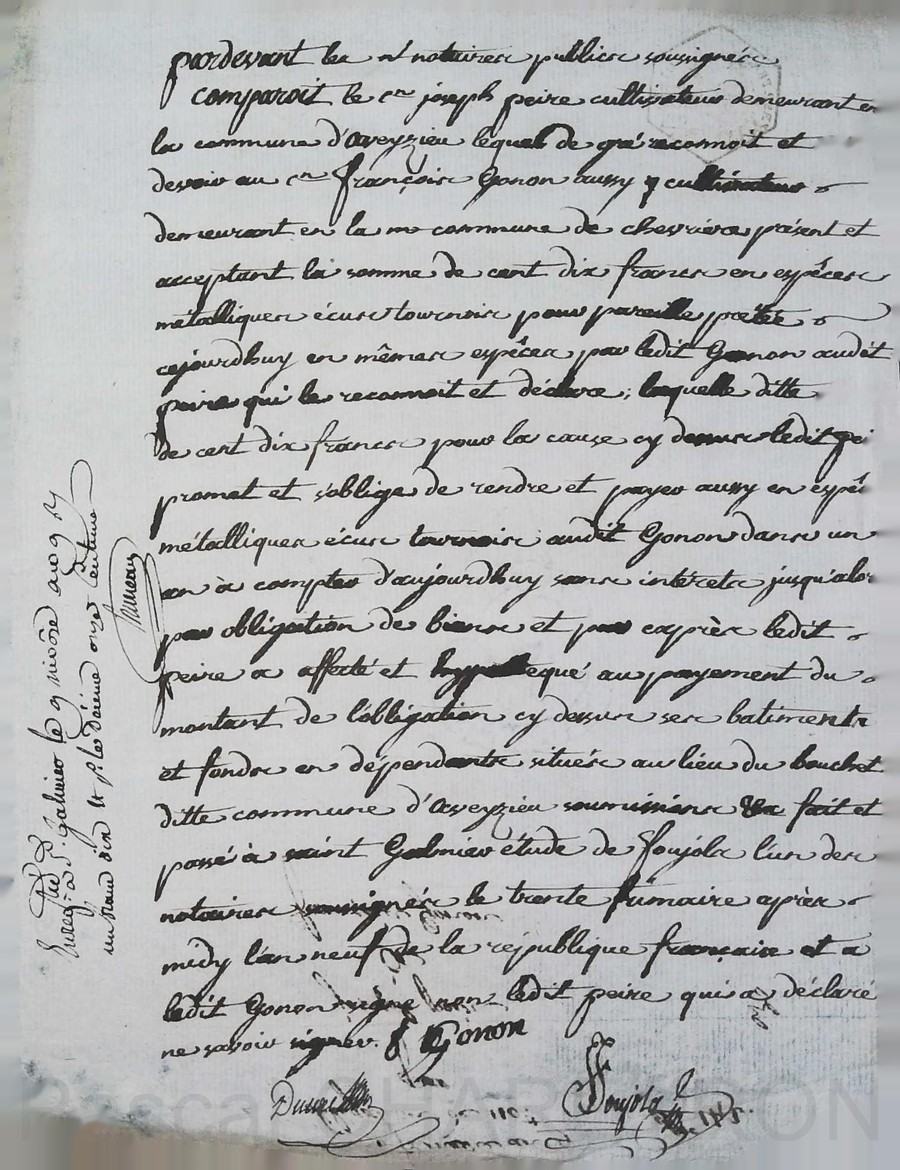 pardevant les nt notaires publics soussignés
comparoit le cn joseph peire cultivateur demeurant en
la commune d'aveyzieu lequel de gré reconnoit et
devoir au cn françois Gonon aussy cultivateur
demeurant en la me commune de chevrières présent et
acceptant la somme de cent dix francs en espêces
métalliques écus tournois pour pareille prêtée
cejourdhuy en mêmes espêces par ledit Gonon audit
peire qui le reconnoit et déclare, laquelle ditte
de cent dix francs pour la cause cy dessus ledit pei
promet et s'oblige de rendre et payer aussy en espê
métalliques écus tournois audit Gonon dans un
an à compter d'aujourdhuy sans intérets jusqu'alor
par obligation de biens et par exprès ledit
peire a affecté et hyppotequé au payement du
montant de l'obligation cy dessus ses batiments
et fonds en dépendants situés au lieu du bouchet
ditte commune d'aveyzieu soumissions &a fait et
passé à saint Galmier étude de Soujols l'un des
notaires soussignés le trente frimaire après
midy l'an neuf de la république française et a
ledit Gonon signé non ledit peire qui a déclaré
ne savoir signer. Gonon
Soujols
Enreg. à St. Galmier le 9 nivôse an 9
un franc dix et pr le décime onze centimes